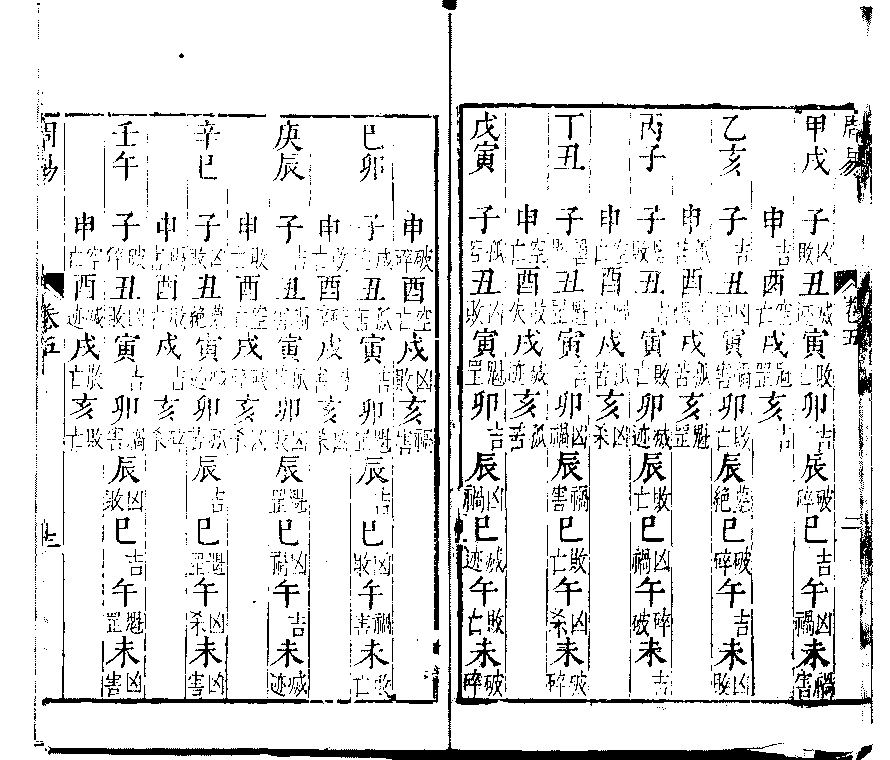 周易 卷五 二
甲戌 子凶敗 丑滅迹 寅敗亡 卯吉 辰破碎 巳吉 午凶禍 未禍害
申吉 酉空亡 戌魁罡 亥吉
乙亥 子吉 丑凶敗 寅禍害 卯敗亡 辰墓絕 巳破碎 午吉 未凶敗
申孤苦 酉吉 戌孤苦 亥魁罡
丙子 子 丑吉 寅敗亡 卯滅迹 辰敗亡 巳凶禍 午碎破 未吉
申空亡 酉吉 戌孤苦 亥凶杀
丁丑 子 丑魁罡 寅吉 卯凶禍 辰禍害 巳敗亡 午凶杀 未破碎
申空亡 酉敗失 戌滅迹 亥孤苦
戊寅 子孤 丑凶敗 寅魁罡 卯吉 辰凶禍 巳滅迹 午敗亡 未破碎
申破碎 酉空亡 戌凶敗 亥禍害
己卯 子 丑孤 寅吉 卯魁罡 辰吉 巳凶敗 午禍害 未敗亡
申敗亡 酉 戌 亥凶杀
庚辰 子吉 丑 寅孤 卯凶敗 辰魁罡 巳凶禍 午吉 未滅迹
申敗亡 酉空亡 戌破碎 亥凶杀
辛巳 子凶敗 丑墓絕 寅滅迹 卯孤苦 辰吉 巳魁罡 午凶杀 未凶害
申 酉敗 戌吉 亥碎杀
壬午 子破碎 丑凶敗 寅吉 卯禍害 辰凶敗 巳吉 午魁罡 未凶害
申空亡 酉滅迹 戌敗亡 亥敗亡
周易 卷五